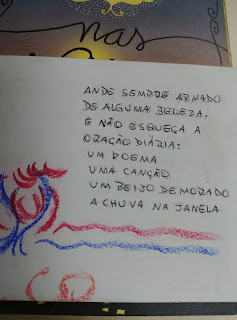 nas
ANDE SEMPRE ARMADO
DE ALGUMA BELEZA.
E NÃO ESQUEÇA A
ORAÇÃO DIÁRIA:
UM POEMA
UMA CANÇÃO
UM BEIJO DEMORADO
A CHUVA NA JANELA